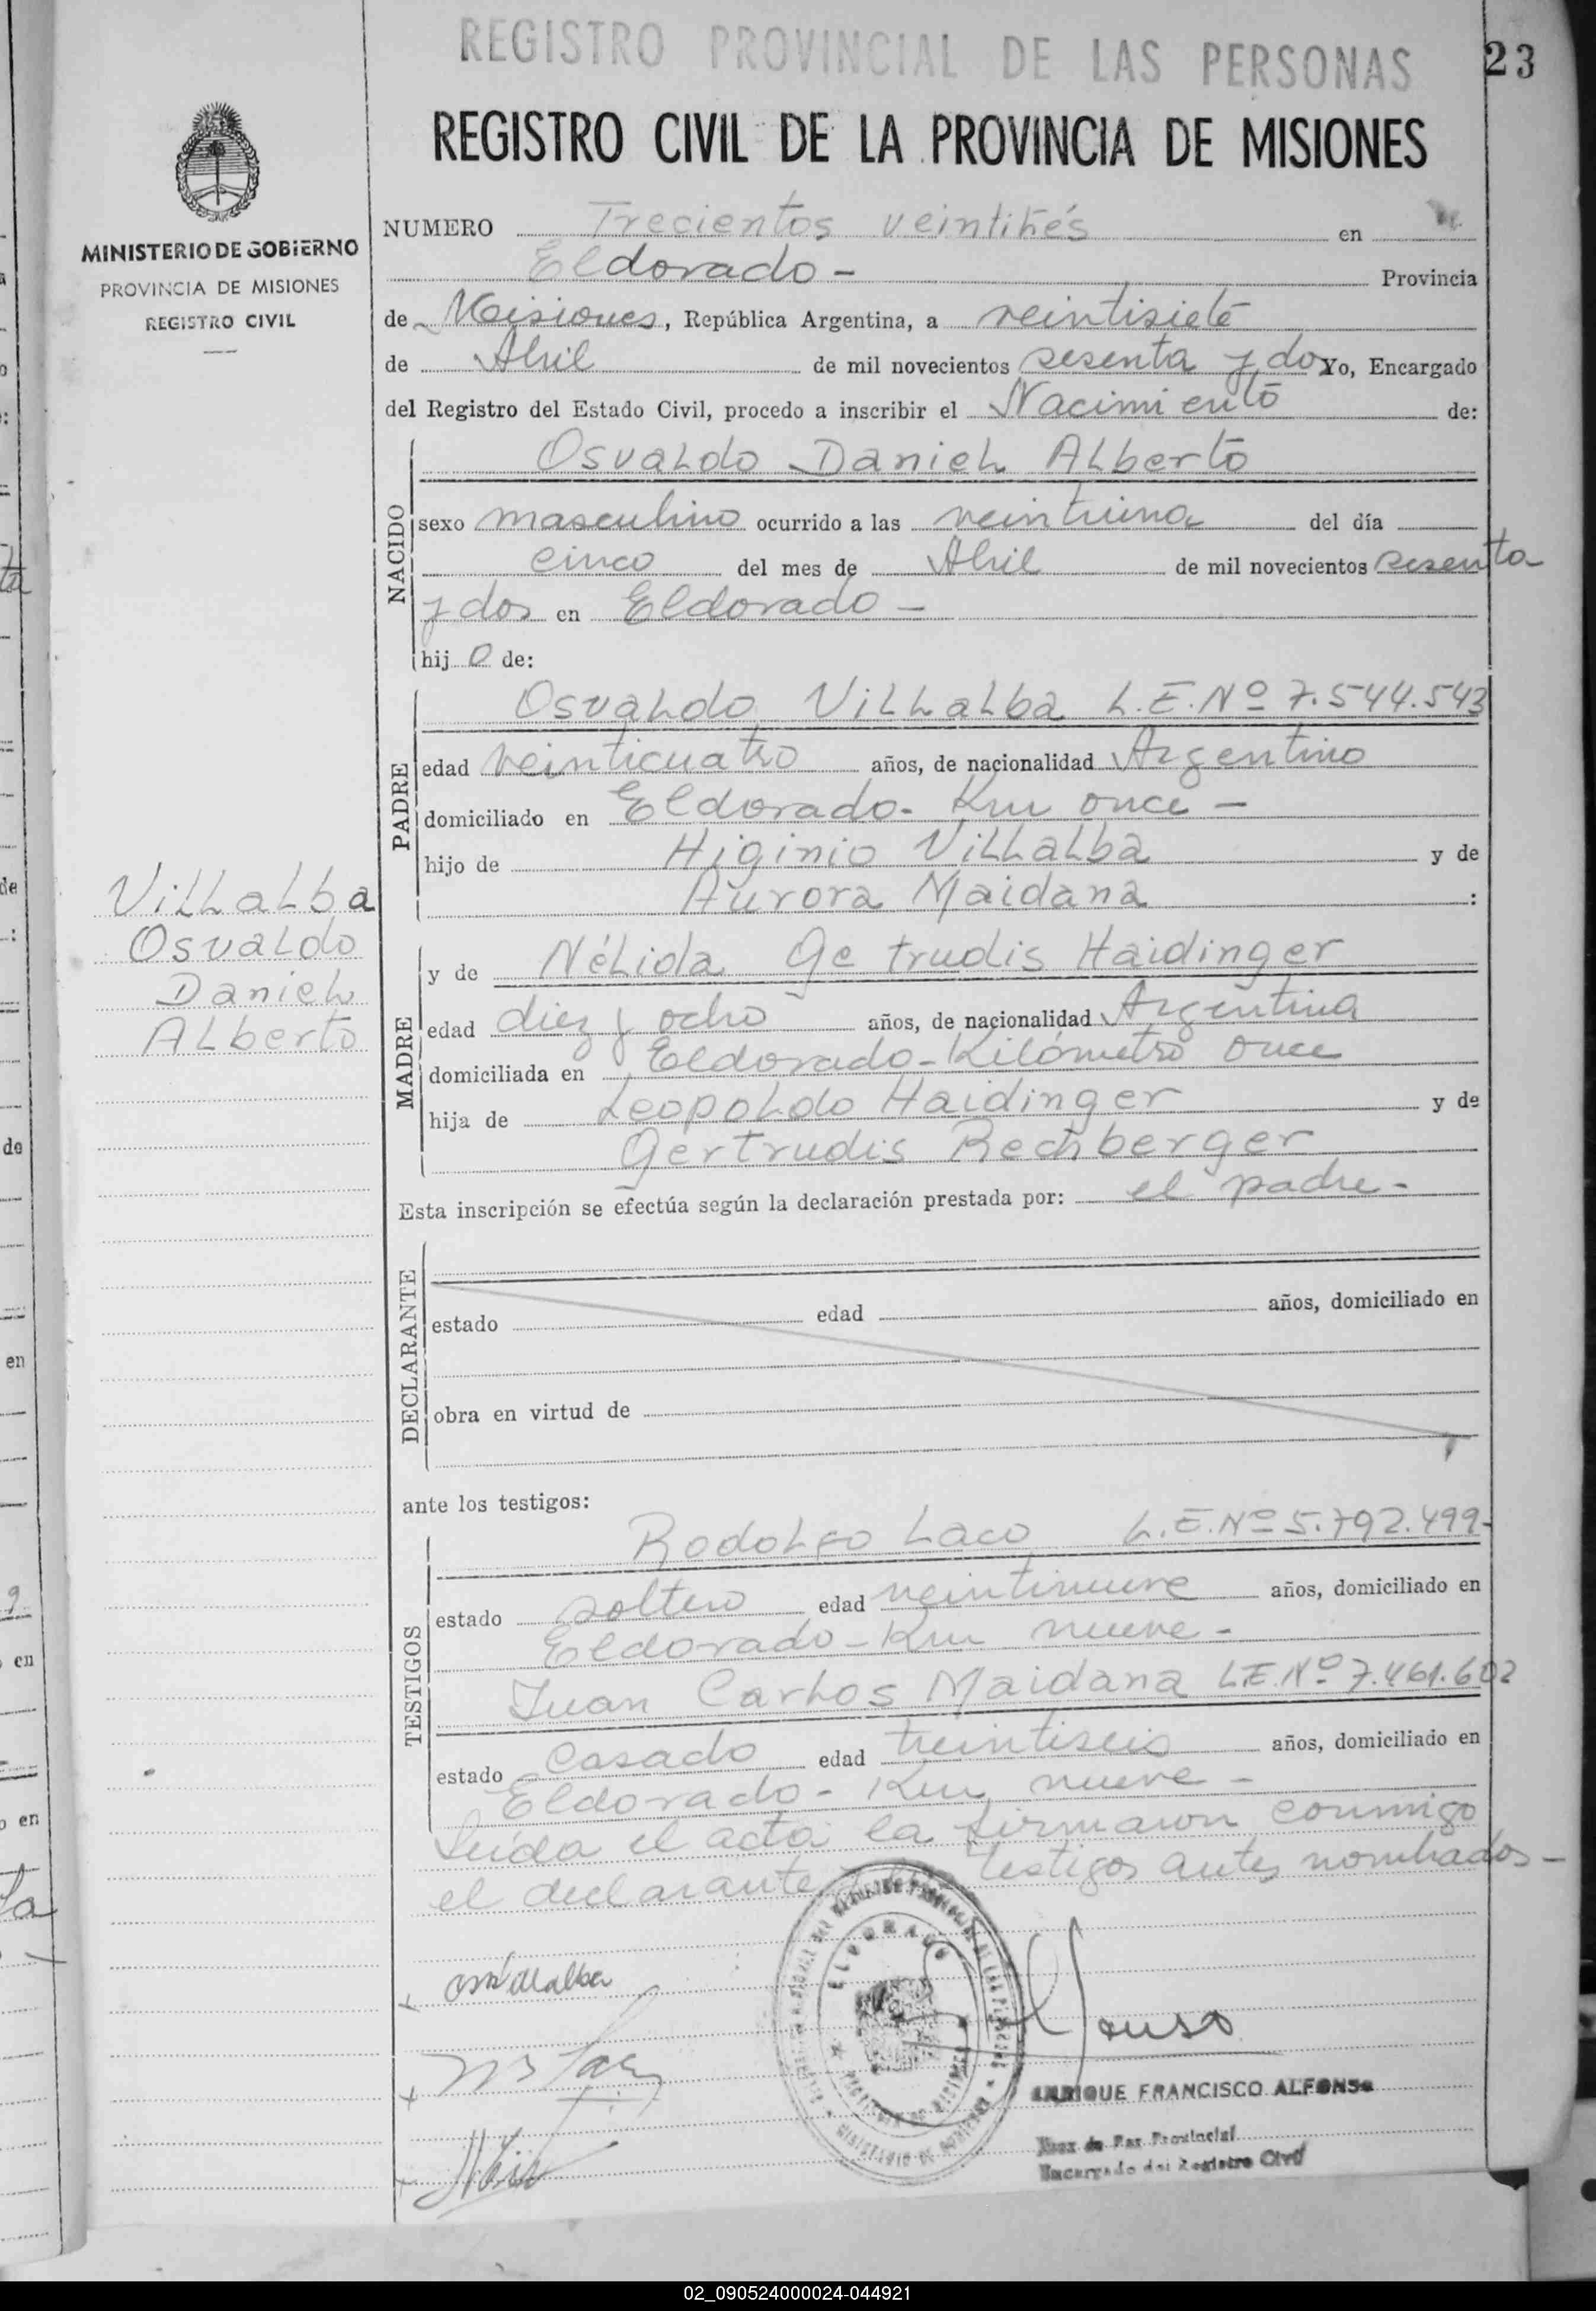 REGISTRO PROVINCIAL DE LAS PERSONAS
23
REGISTRO CIVIL DE LA PROVINCIA DE MISIONES
MINISTERIO DE GOBIERNO
PROVINCIA DE MISIONES
REGISTRO CIVIL
NUMERO Trecientos veintitrés en
Eldorado - Provincia
de Misiones, República Argentina, a veintisiete
de Abril de mil novecientos sesenta y dos Yo, Encargado
del Registro del Estado Civil, procedo a inscribir el Nacimiento de:
NACIDO
Osvaldo Daniel Alberto
sexo masculino ocurrido a las veintiuna del día
cinco del mes de Abril de mil novecientos sesenta
y dos en Eldorado -
hijo de:
PADRE
Osvaldo Villalba L.E. Nº 7.544.543
edad veinticuatro años, de nacionalidad Argentino
domiciliado en Eldorado - Km once -
hijo de Higinio Villalba y de
Aurora Maidana :
Villalba
Osvaldo
Daniel
Alberto
MADRE
y de Nélida Ge trudis Haidinger
edad diez y ocho años, de nacionalidad Argentina
domiciliada en Eldorado - Kilómetro once
hija de Leopoldo Haidinger y de
Gertrudis Rechberger
Esta inscripción se efectúa según la declaración prestada por: el padre -
DECLARANTE
estado edad años, domiciliado en
obra en virtud de
ante los testigos:
TESTIGOS
Rodolfo Laco L.E. Nº 5.792.499-
estado soltero edad veintinueve años, domiciliado en
Eldorado - Km nueve -
Juan Carlos Maidana L.E. Nº 7.461.602
estado casado edad treintiseis años, domiciliado en
Eldorado - Km nueve -
Leída el acta la firmaron conmigo
el declarante testigos antes nombrados -
ELDORADO
Alfonso
ENRIQUE FRANCISCO ALFONSO
Juez de Paz Provincial
Encargado del Registro Civil
02_090524000024-044921